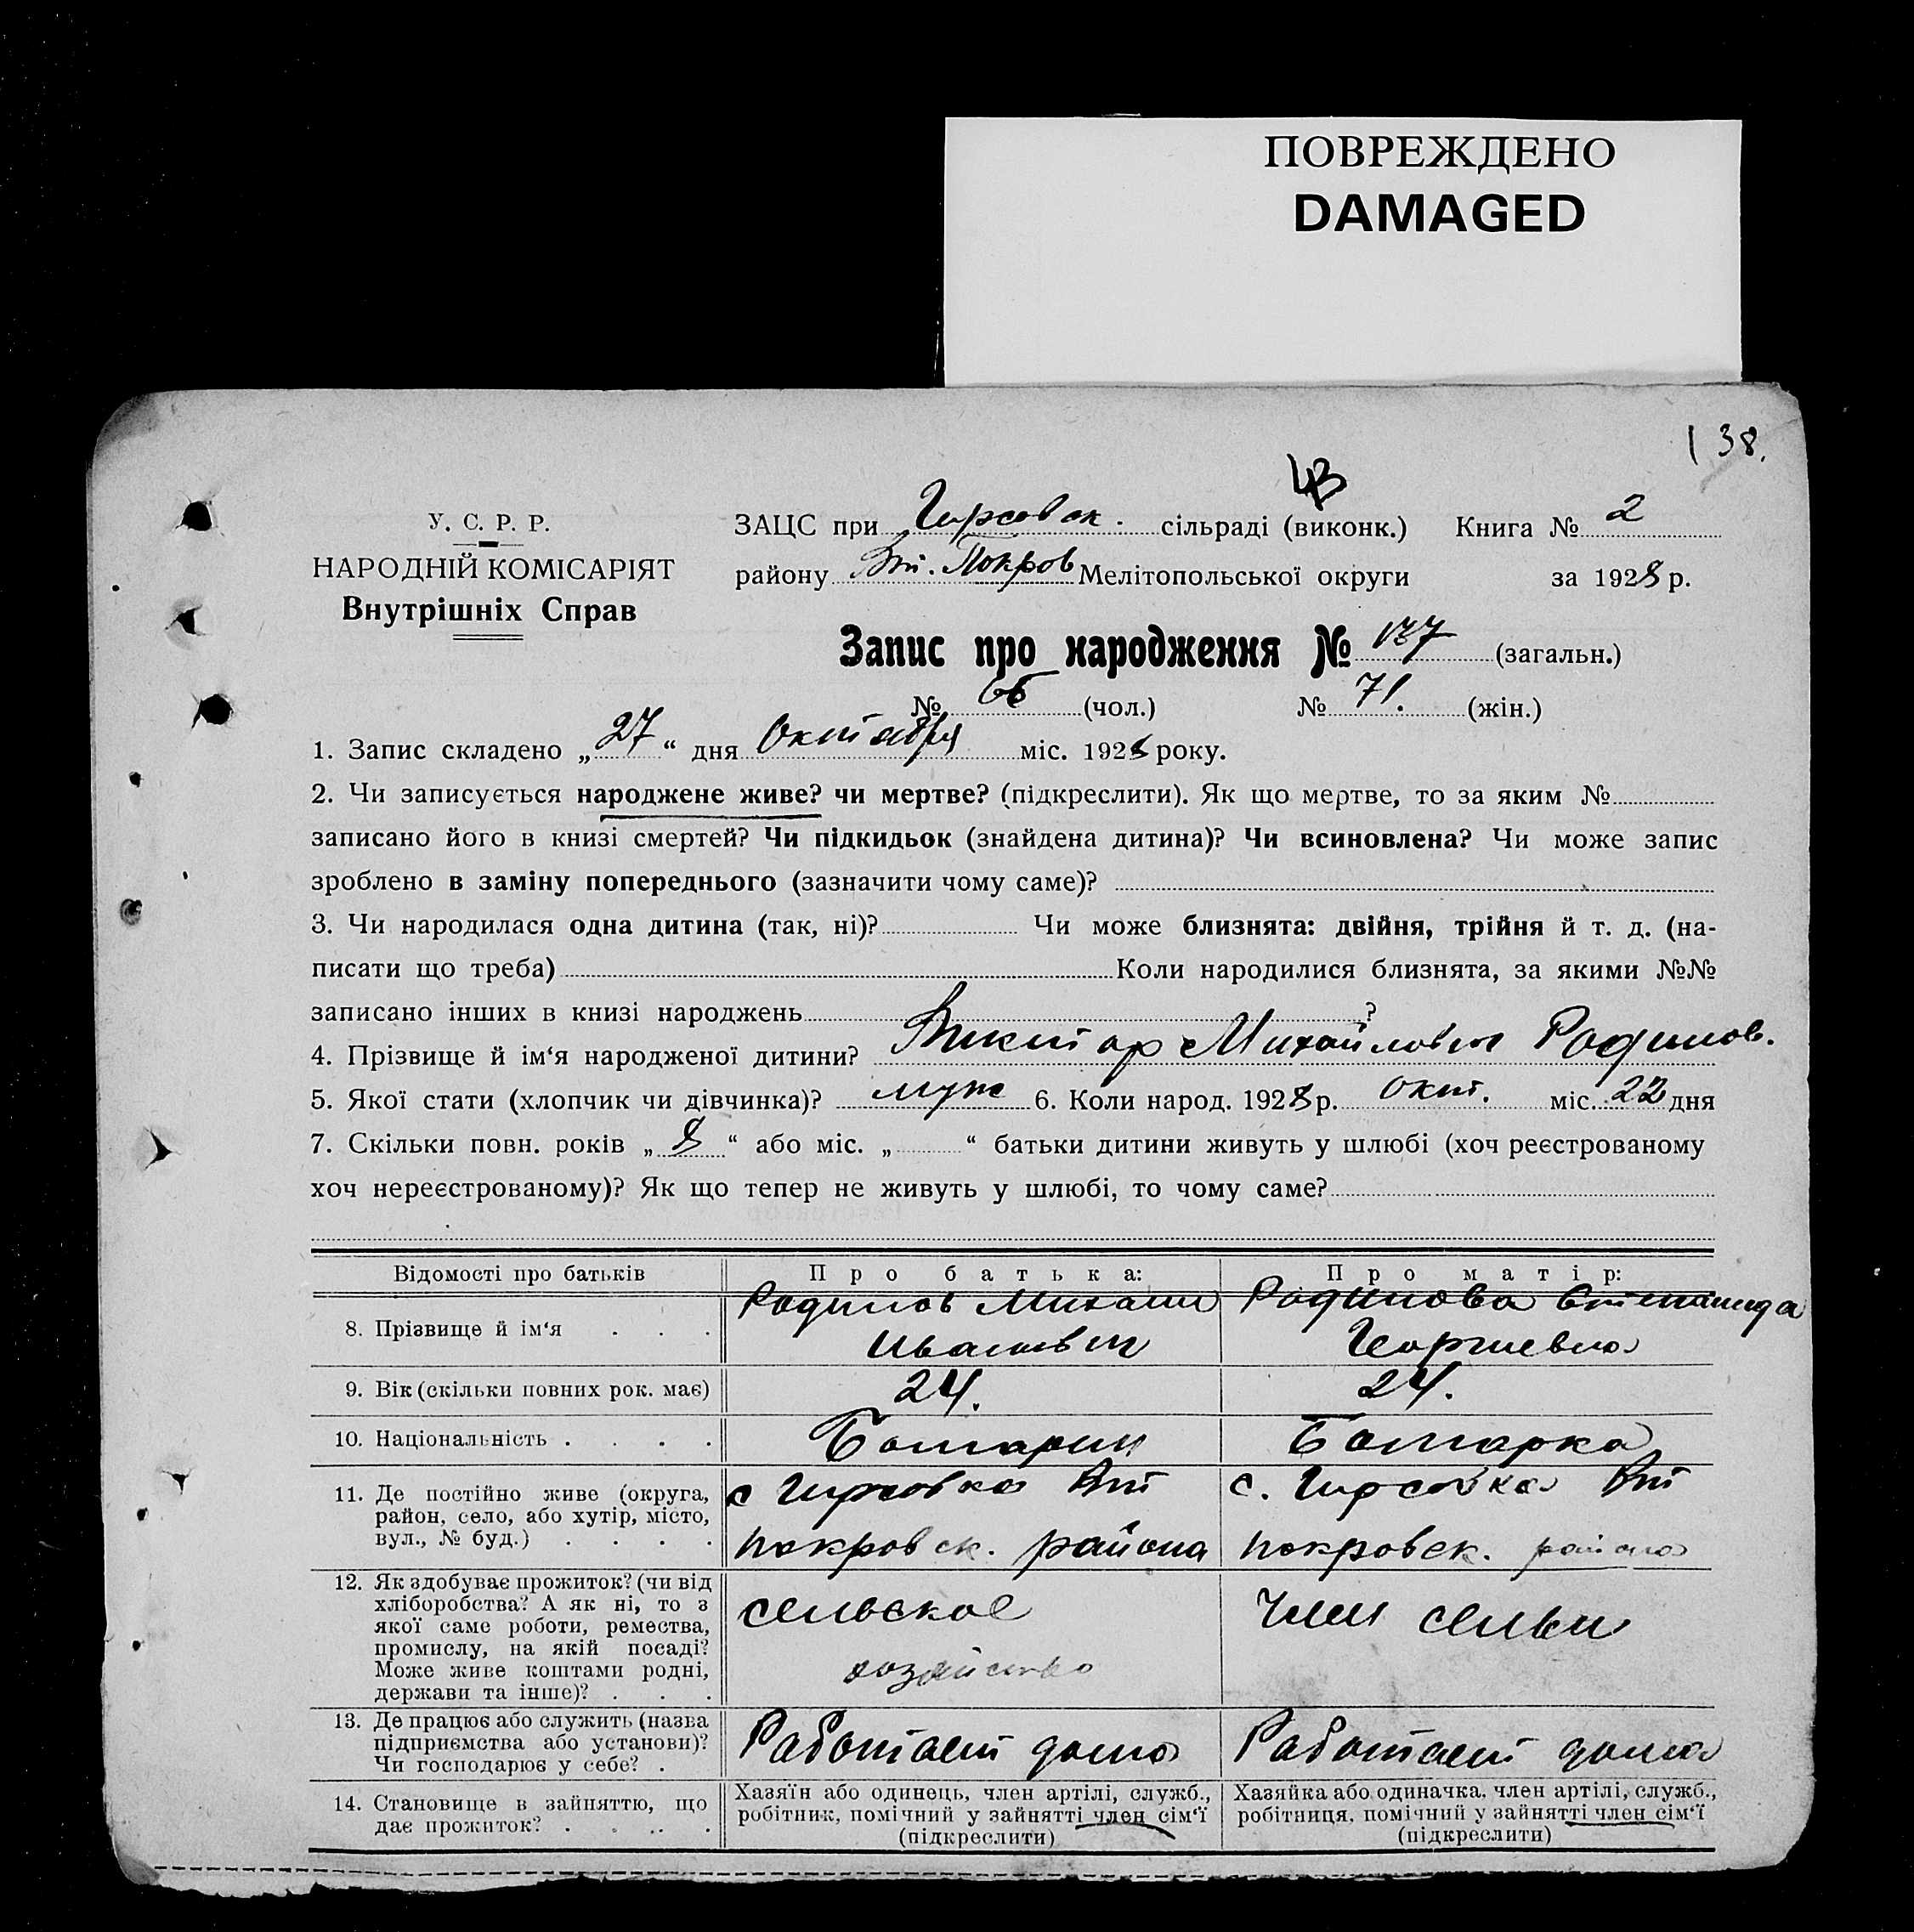 ПОВРЕЖДЕНО
DAMAGED
138.
43
У. С. Р. Р.
НАРОДНІЙ КОМІСАРІЯТ
Внутрішніх Справ
ЗАЦС при Гирсовск. сільраді (виконк.) Книга № 2
району Вт. Покров Мелітопольської округи за 1928 р.
Запис про народження № 137 (загальн.)
№ 66 (чол.) № 71. (жін.)
1. Запис складено „27“ дня Октября міс. 1928 року.
2. Чи записується народжене живе? чи мертве? (підкреслити). Як що мертве, то за яким №
записано його в книзі смертей? Чи підкидьок (знайдена дитина)? Чи всиновлена? Чи може запис
зроблено в заміну попереднього (зазначити чому саме)?
3. Чи народилася одна дитина (так, ні)? Чи може близнята: двійня, трійня й т. д. (на-
писати що треба) Коли народилися близнята, за якими №№
записано інших в книзі народжень ?
4. Прізвище й ім‘я народженої дитини? Виктор Михайлович Родинов.
5. Якої стати (хлопчик чи дівчинка)? муж 6. Коли народ. 1928 р. окт. міс. 22 дня
7. Скільки повн. років „8“ або міс. „ “ батьки дитини живуть у шлюбі (хоч реєстрованому
хоч нереєстрованому)? Як що тепер не живуть у шлюбі, то чому саме?
Відомості про батьків Про батька: Про матір:
8. Прізвище й ім‘я . . . Родинов Михаил Иванович Родинова Степанида Георгиевна
9. Вік (скільки повних рок. має) 24. 24.
10. Національність . . . . Болгарин Болгарка
11. Де постійно живе (округа, район, село, або хутір, місто, вул., № буд.) . . . . с Гирсовка Вт покровск. района с. Гирсовка Вт покровск. района
12. Як здобуває прожиток? (чи від хліборобства? А як ні, то з якої саме роботи, ремества, промислу, на якій посаді? Може живе коштами родні, держави та інше)? . . . сельское хозяйство Член семьи
13. Де працює або служить (назва підприємства або установи)? Чи господарює у себе? . Работает дома Работает дома
14. Становище в зайняттю, що дає прожиток? . . . . Хазяїн або одинець, член артілі, служб., робітник, помічний у зайнятті член сім‘ї (підкреслити) Хазяйка або одиначка, член артілі, служб., робітниця, помічний у зайнятті член сім‘ї (підкреслити)